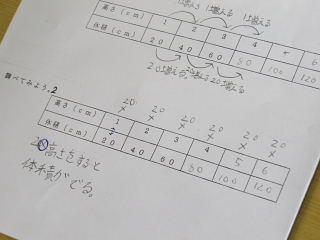 1ずつ増える 1ずつ増える 1ずつ増える
高さ(cm) 1 2 3 4 5 6
体積(cm) 20 40 60 80 100 120
20ずつ増える。20ずつ増える 20ずつ増える
調べてみよう。2
20 20 20 20 20 20
× × × × × ×
高さ(cm) 1 2 3 4 5 6
体積(cm) 20 40 60 80 100 120
高さをすると
体積がでる。